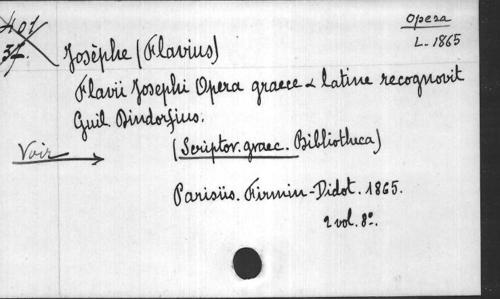 401
37.
Opera
L. 1865
Josèphe (Flavius)
Flavii Josephi Opera graece & latine recognovit
Guil. Dindorfius.
Voir
(Scriptor. graec. Bibliotheca)
Parisiis. Firmin-Didot. 1865.
2 vol. 8º.